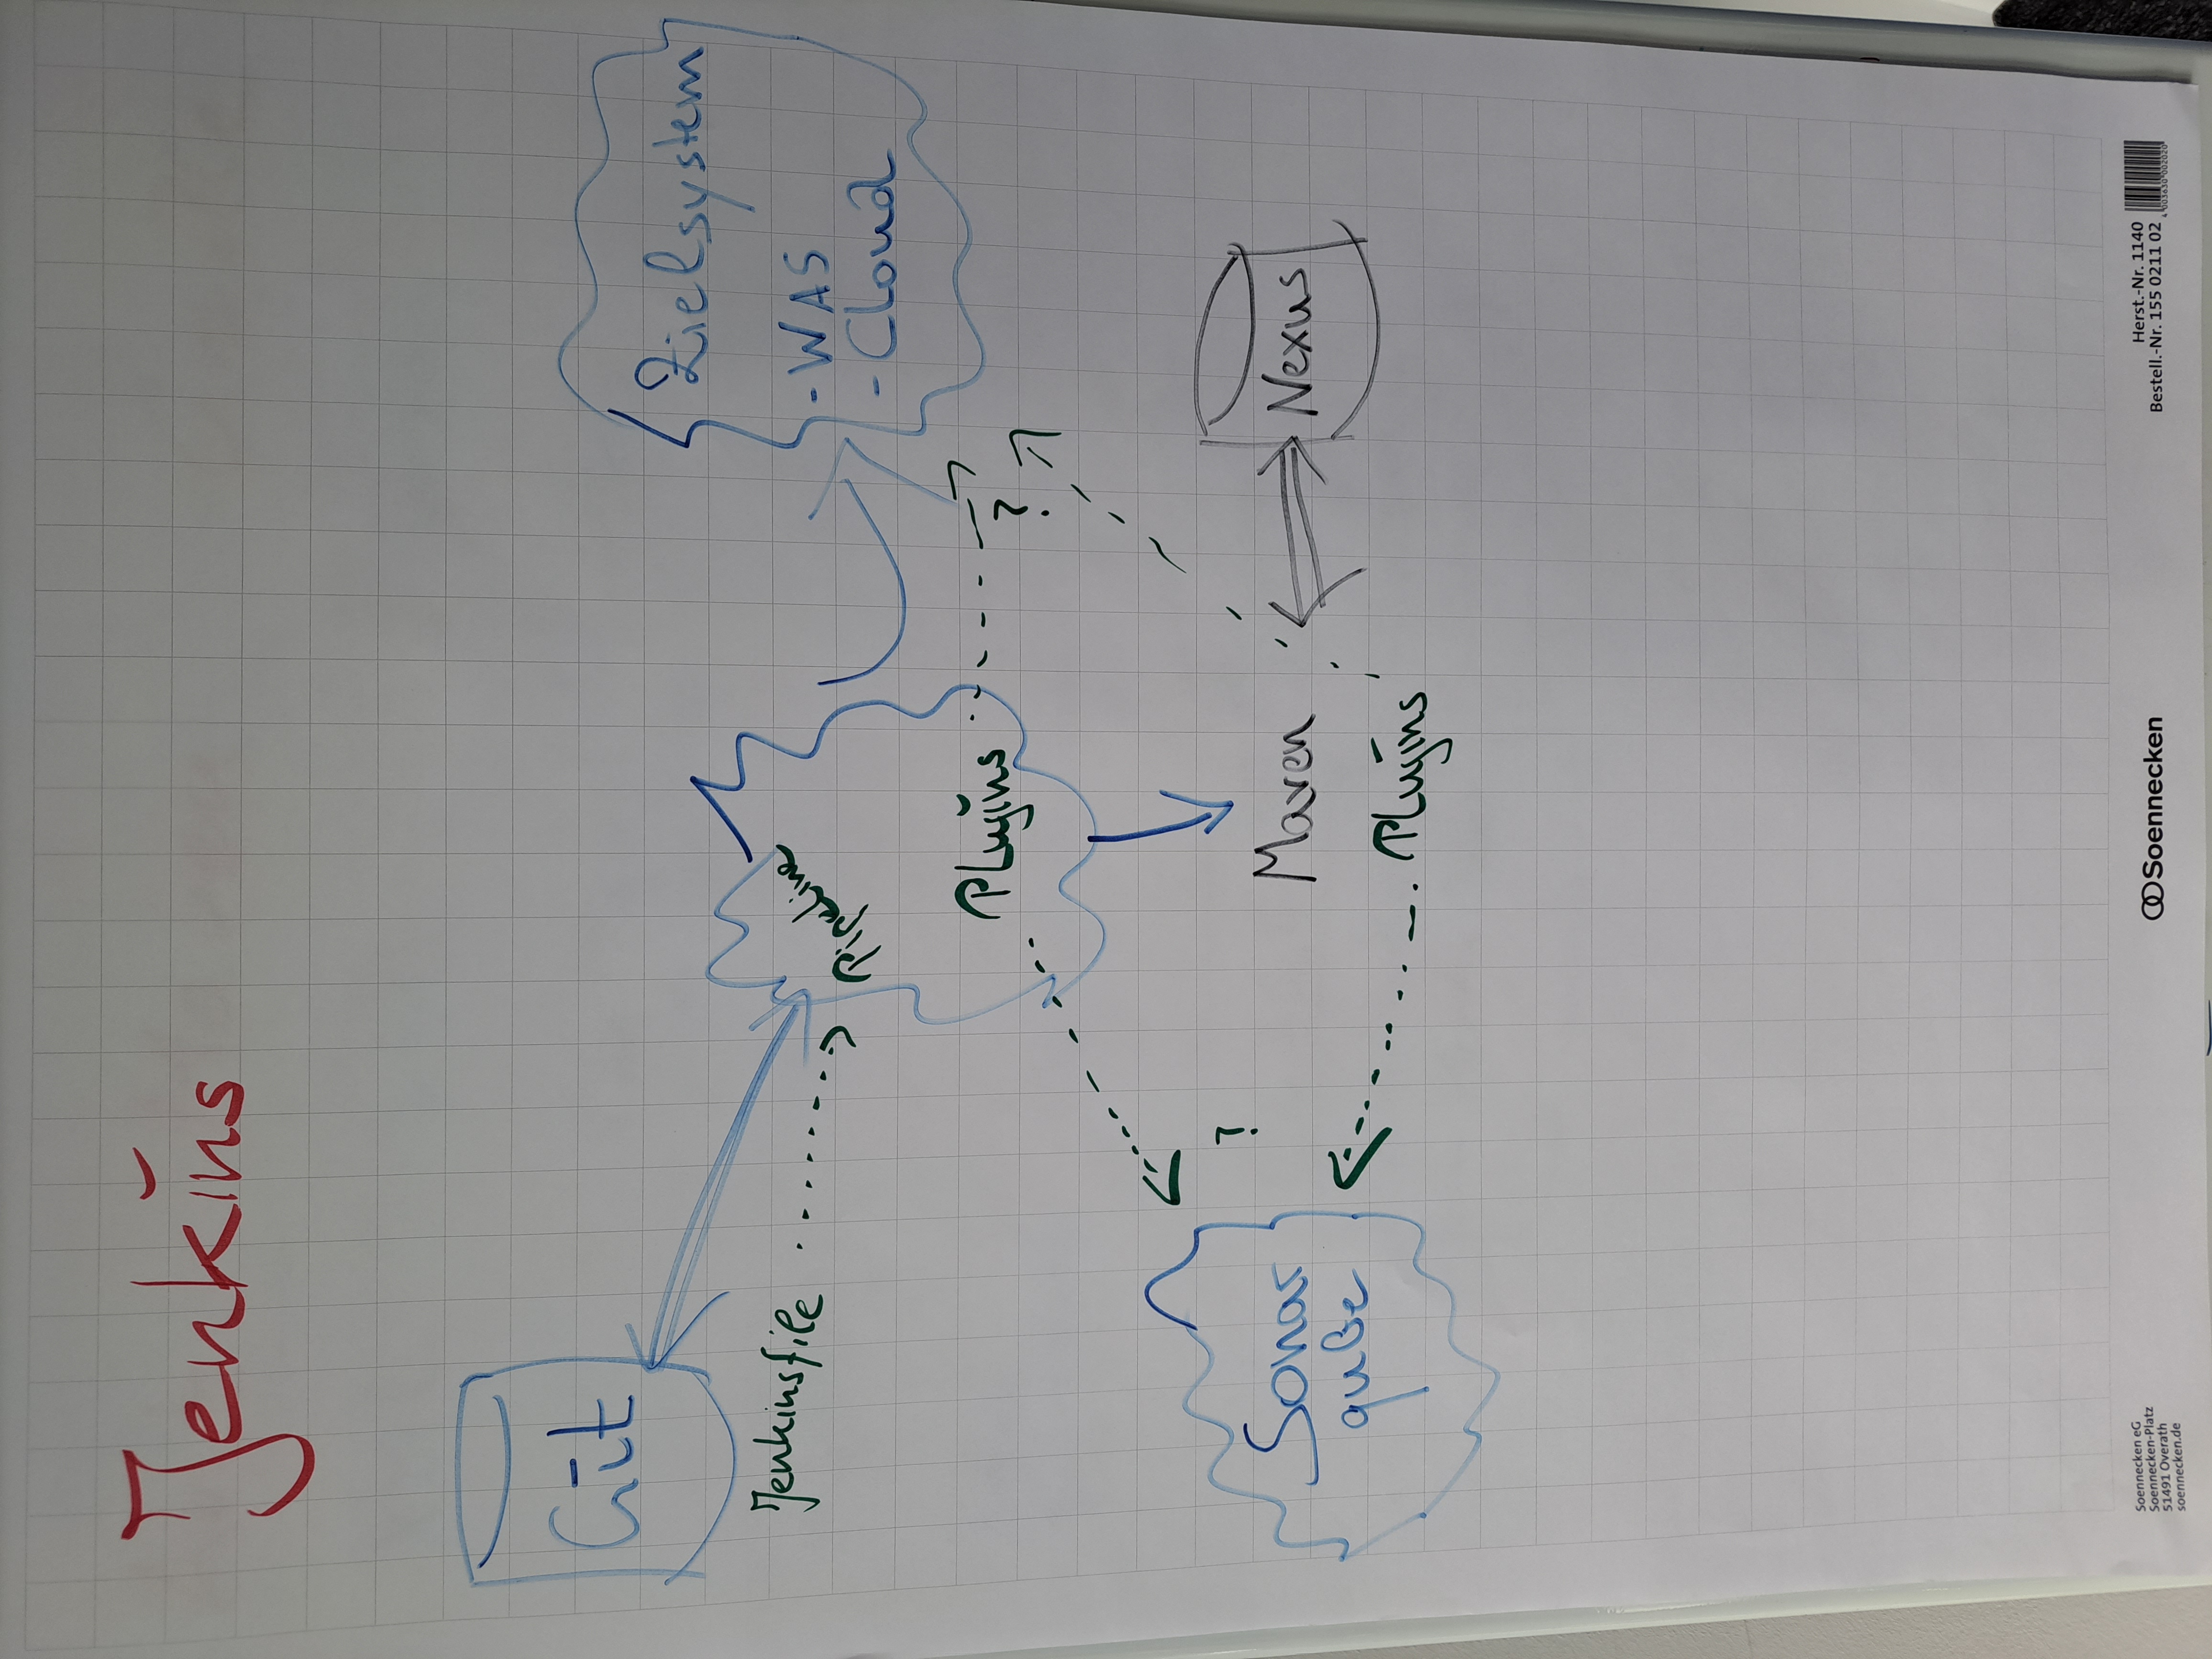 Jenkins
Git
Jenkinsfile
Pipeline
Plugins
Zielsystem
- WAS
- Cloud
?
?
Sonar
qube
Maven
Nexus
Plugins
Soennecken eG
Soennecken-Platz
51491 Overath
soennecken.de
Soennecken
Herst.-Nr. 1140
Bestell.-Nr. 155 0211 02
4 003630 002020